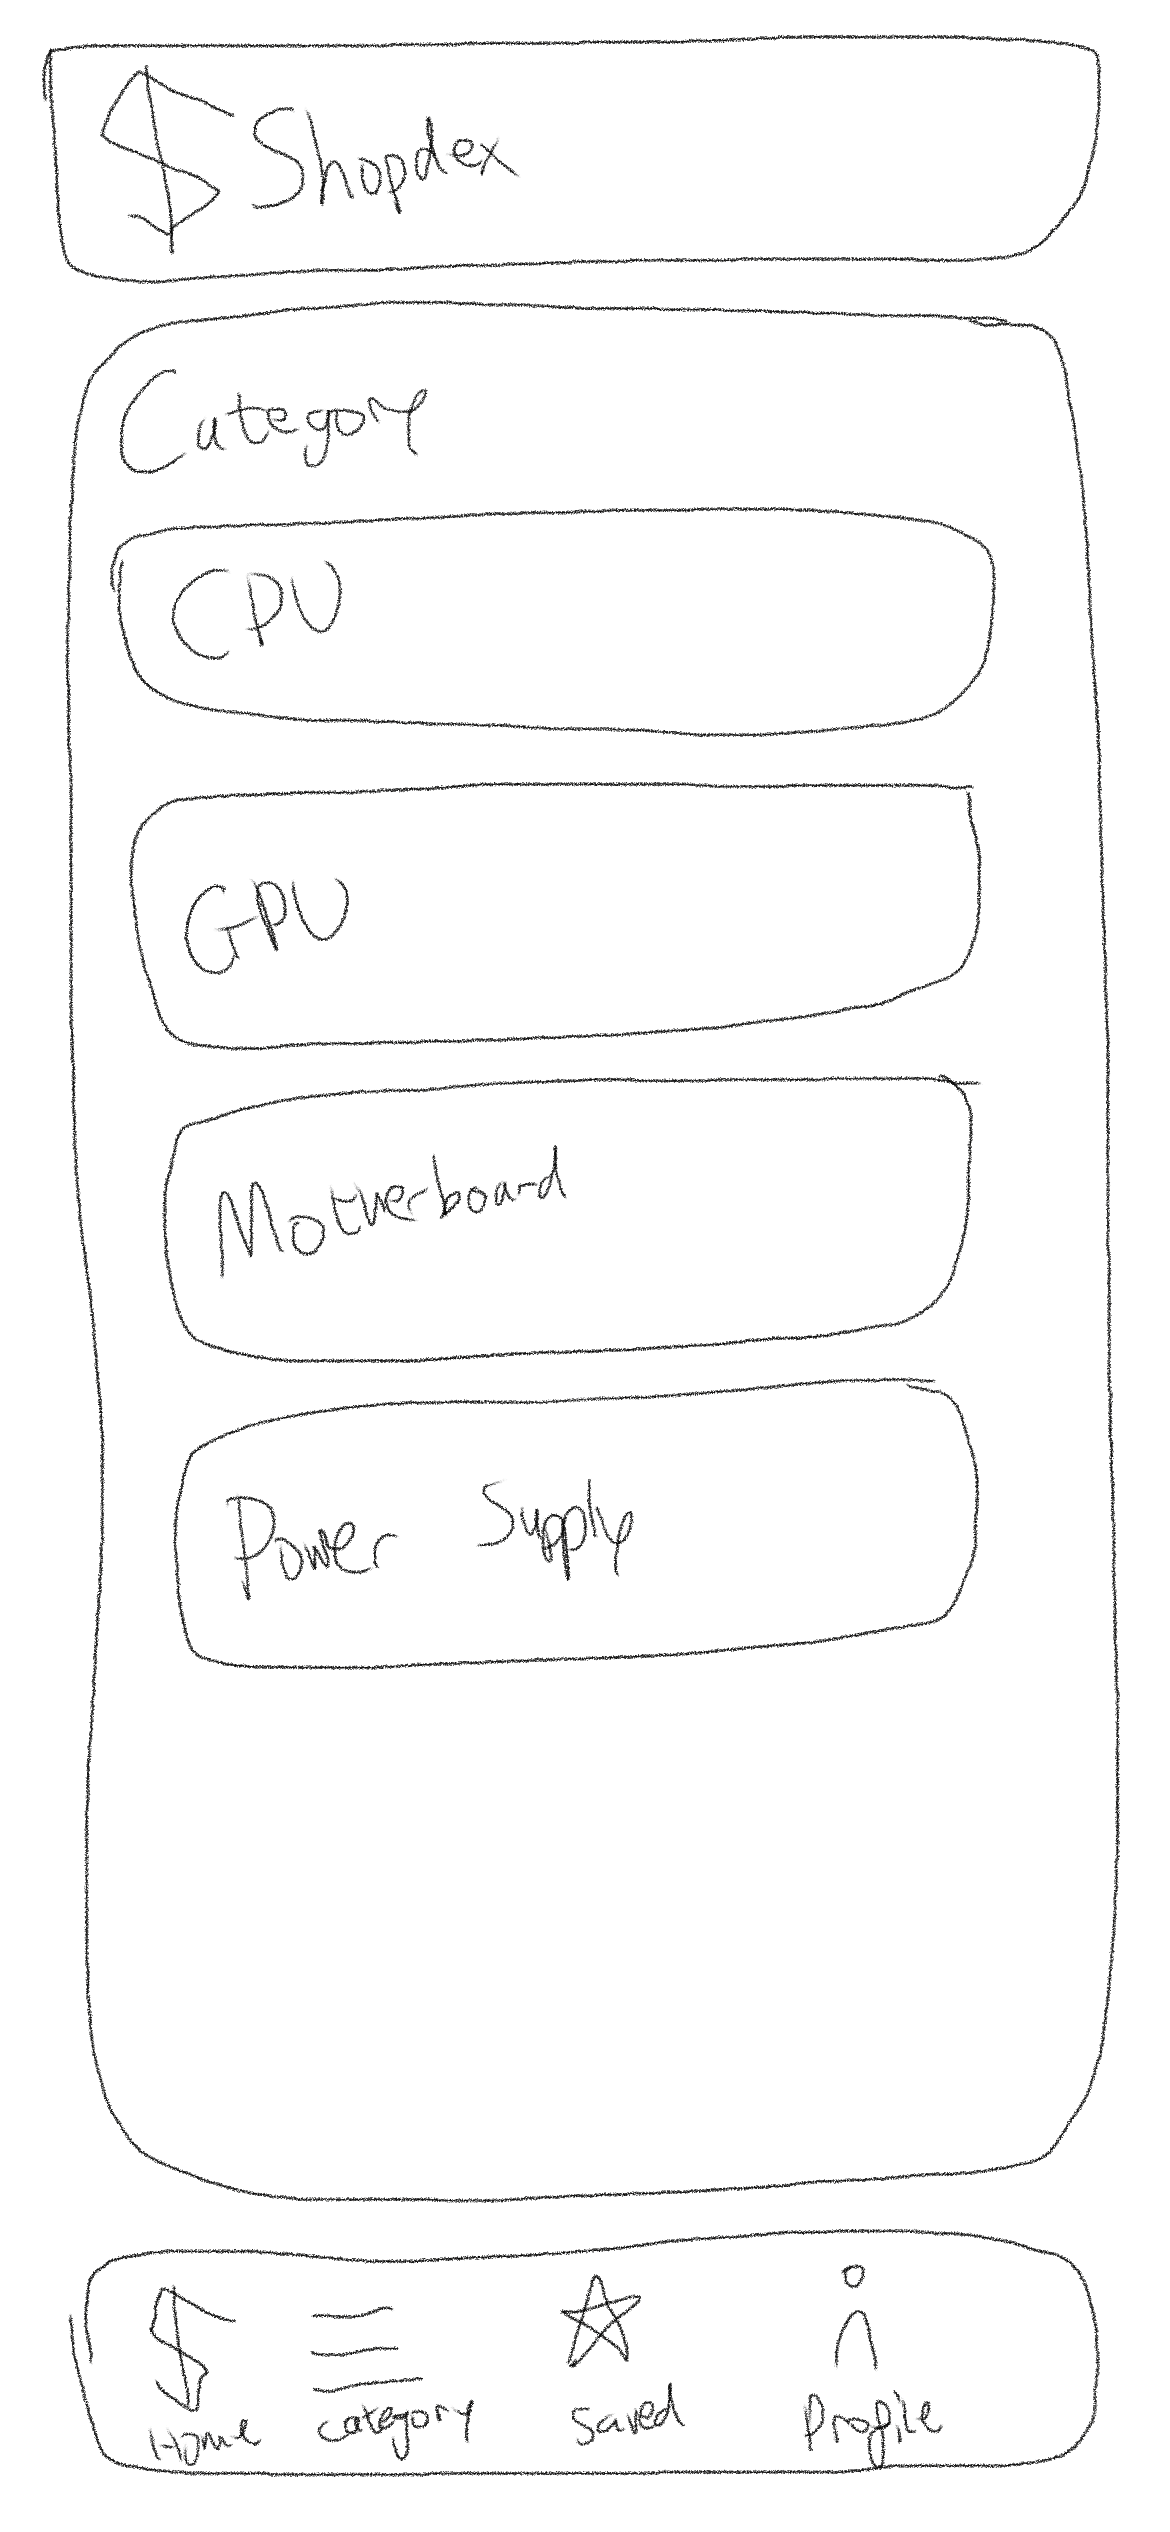 $ Shopdex
Category
CPU
GPU
Motherboard
Power Supply
Home category saved Profile